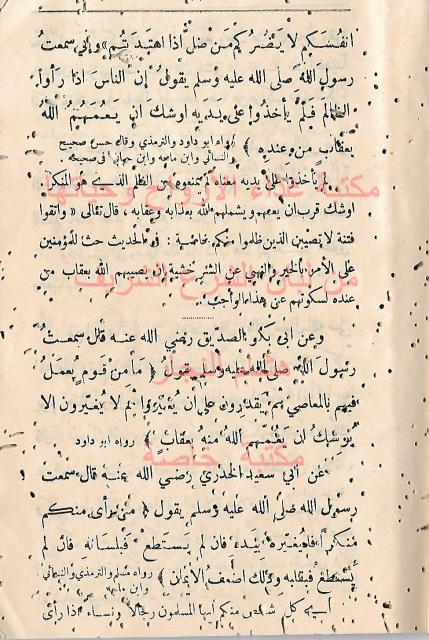 انفسكم لا يضركم من ضل اذا اهتديتم » واني سمعت
رسول الله صلى الله عليه وسلم يقول ان الناس اذا رأوا
الظالم فلم يأخذوا على يديه اوشك ان يعمهم الله
بعقاب من عنده ﴾ رواه ابو داود والترمذي وقال حسن صحيح
والنسائي وابن ماجه وابن حبان في صحيحه
لم يأخذوا على يديه معناه لم يمنعوه من الظلم الذي هو المنكر
مكتبة غذاء الأرواح وحياتها
اوشك قرب ان يعمهم ويشملهم الله بعذابه وعقابه ، قال تعالى « واتقوا
فتنة لا تصيبن الذين ظلموا منكم خاصة : وفي الحديث حث للمؤمنين
على الأمر بالخير والنهي عن الشر خشية ان يصيبهم الله بعقاب من
من لبان الشرع الشريف
عنده لسكوتهم عن هذا الواجب .
وعن ابي بكر الصديق رضي الله عنه قال سمعت
رسول الله صلى الله عليه وسلم يقول ﴿ ما من قوم يعمل
هشام النجار
فيهم بالمعاصي ثم يقدرون على ان يغيروا ثم لا يغيرون الا
يوشك ان يعمهم الله منه بعقاب ﴾ رواه ابو داود
مكتبة خاصة
عن ابي سعيد الخدري رضي الله عنه قال سمعت
رسول الله صلى الله عليه وسلم يقول ﴿ من رأى منكم
منكرا فليغيره بيده فان لم يستطع فبلسانه فان لم
يستطع فبقلبه وذلك اضعف الأيمان ﴾ رواه مسلم والترمذي والنسائي
وابن ماجه
أي كل شخص منكم أيها المسلمون رجالا ونساء اذا رأى